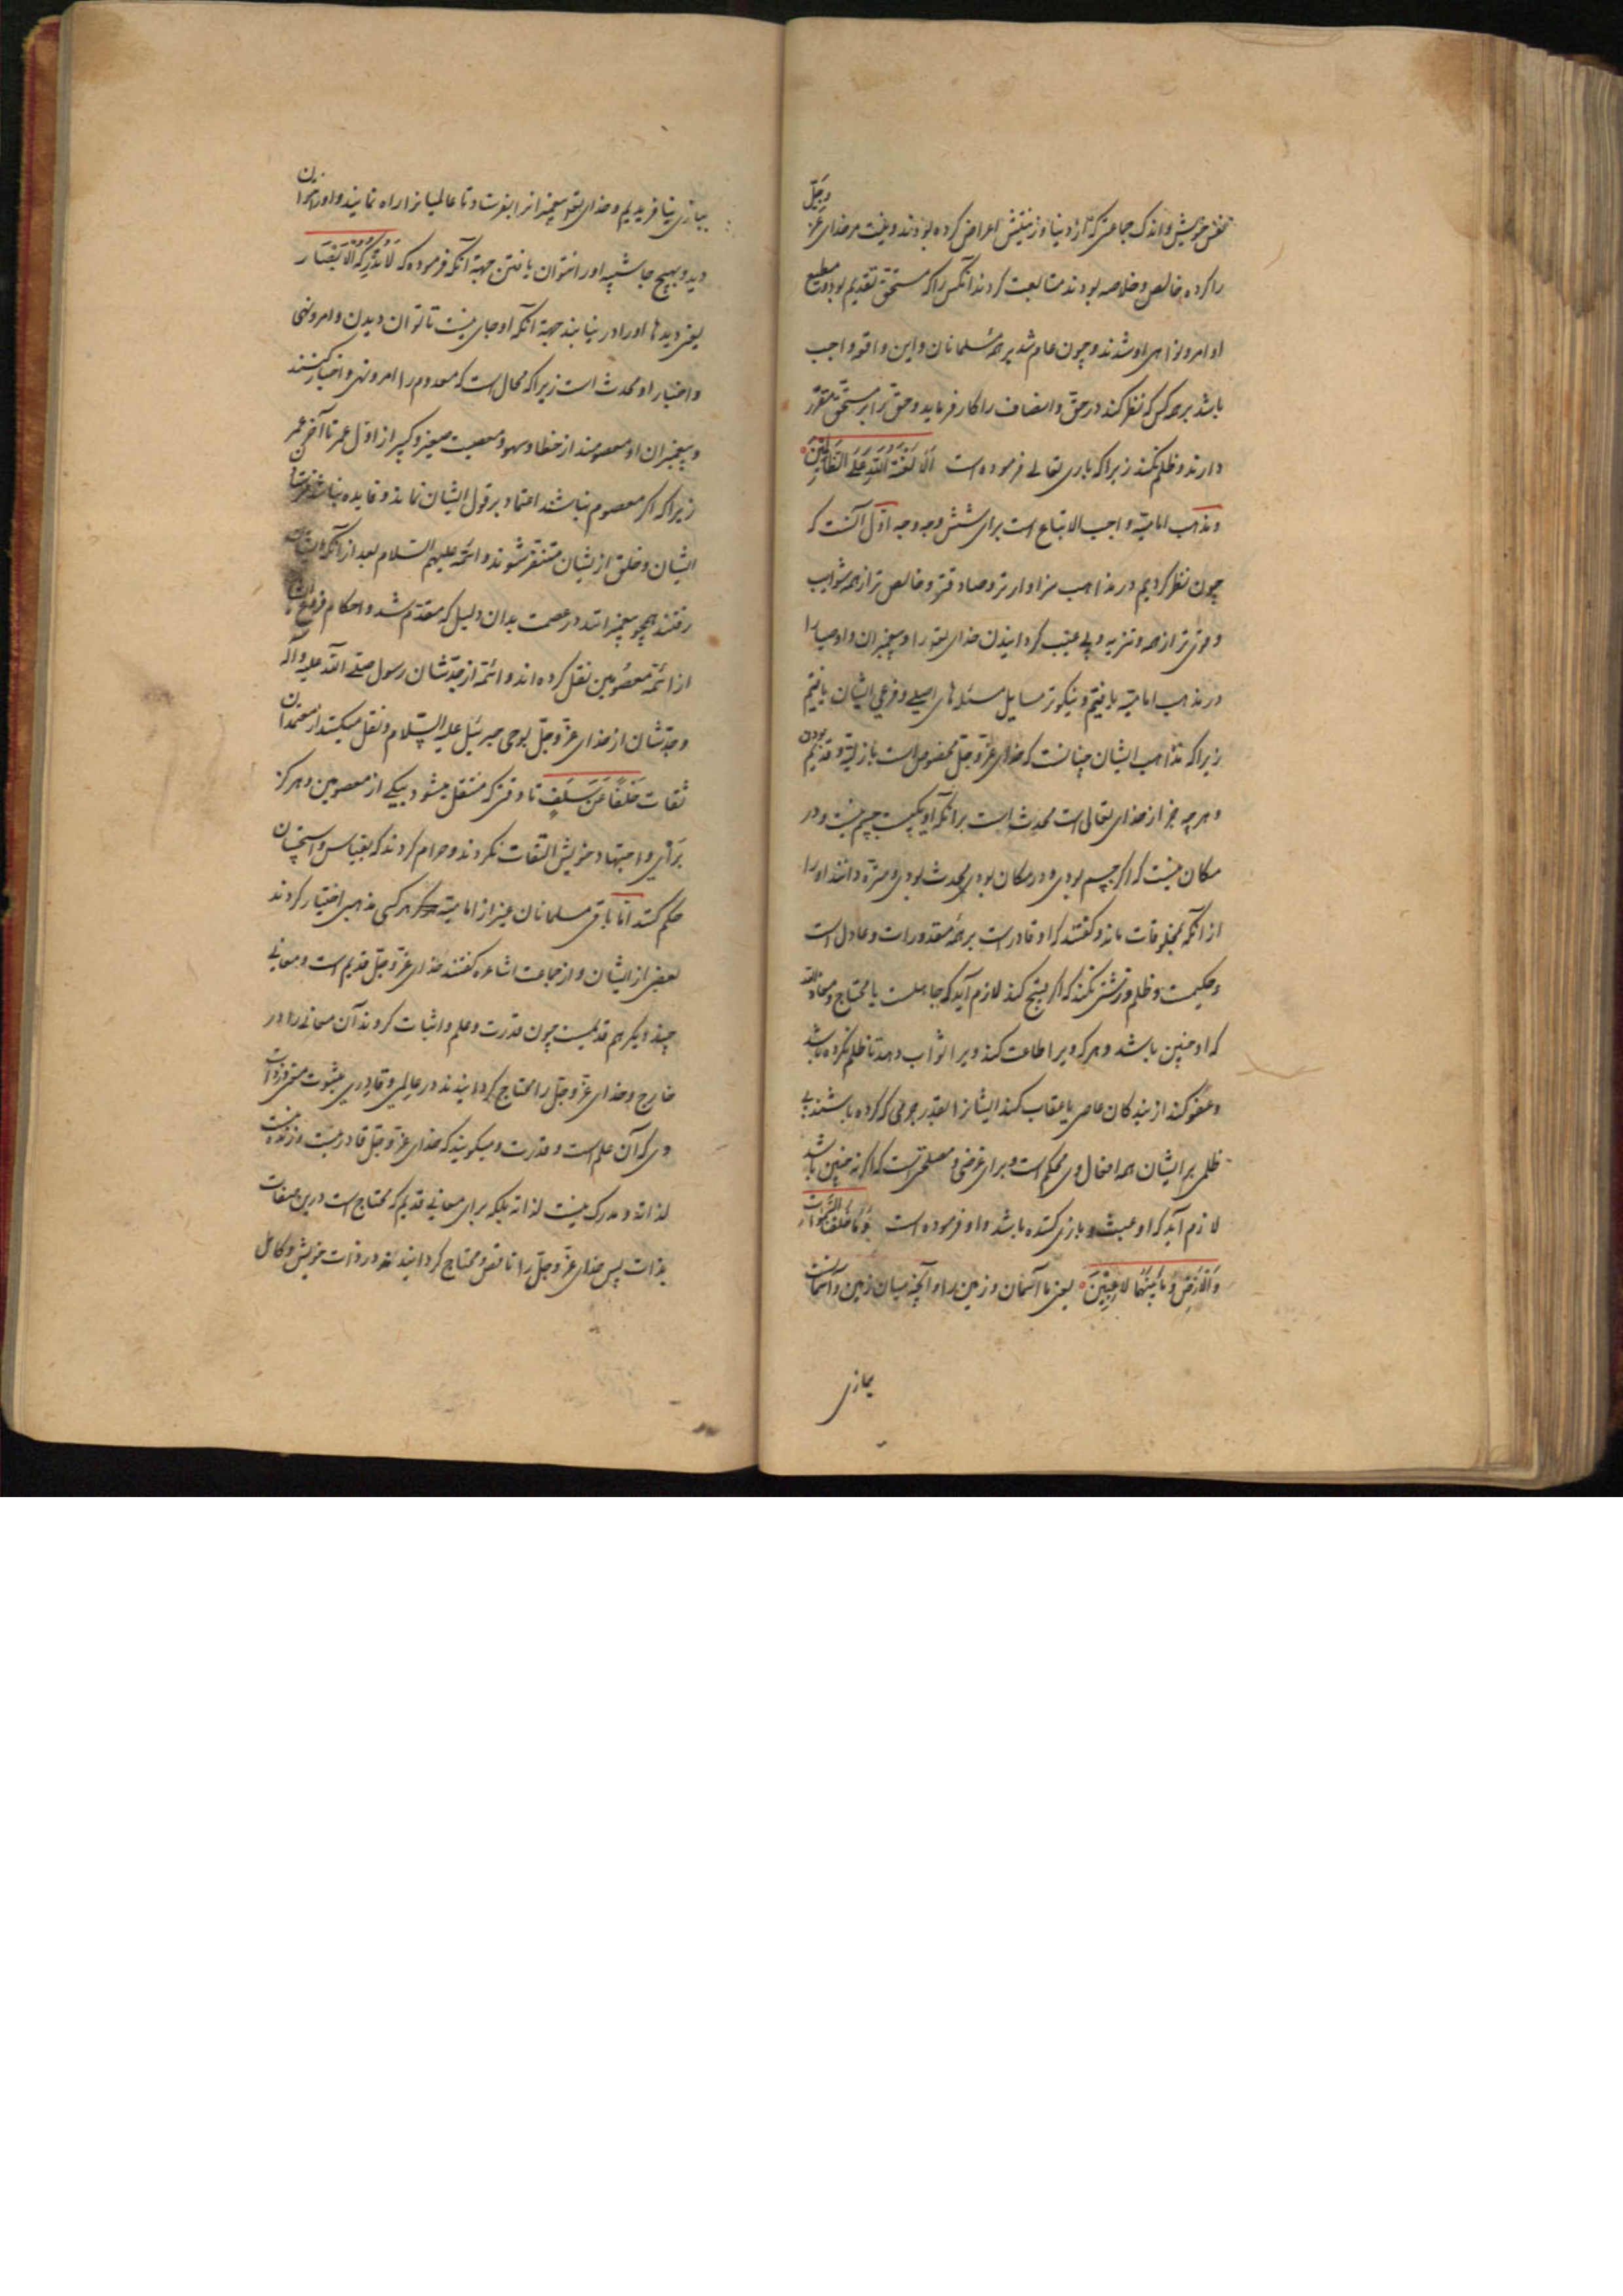 نفس خویش و اندک جماعتی که از دنیا و زینتش اعراض کرده بودند و رغبت مر خدای عز وجل
را کرده خالص و خلاصه بودند متابعت کردند آنکس را که مستحق تقدیم بود و مطیع
اوامر و نواهی او شدند و چون عام شد بر همه مسلمانان و این واقعه واجب
باشد بر هر کس که نظر کند در حق و انصاف را کار فرماید و حق را بر مستحق مقرر
دارند و ظلم نکنند زیرا که باری تعالی فرموده است اَلا لَعْنَةُ اللهِ عَلَی الظّالِمینَ
و مذهب امامیه واجب الاتباع است برای شش وجه وجه اول آنست که
چون نظر کردیم در مذاهب سزاوارتر و صادقتر و خالص تر از همه شوایب
و قوی تر از همه و تنزیه و بی عیب گردانیدن خدای تعالی را و پیغمبران و اوصیا را
در مذهب امامیه یافتیم و نیکوتر مسایل مسئله های اصلی و فرعی ایشان یافتیم
زیرا که مذاهب ایشان چنانست که خدای عز وجل مخصوص است بازلیة و قدیم بودن
و هر چه جز از خدای تعالی است محدث است برانکه او یکیست جسم نیست و در
مکان نیست که اگر جسم بودی و در مکان بودی محدث بودی و منزه دانند او را
از آنکه بمخلوقات ماند و گفتند که او قادر است بر همه مقدورات و عادل است
و حکیمست و ظلم و زشتی نکند که اگر قبیح کند لازم آید که جاهلست یا محتاج و معاذ الله
که او چنین باشد و هر که ویرا اطاعت کند ویرا ثواب دهد تا ظلم نکرده باشد
و عفو کند از بندگان عاصی یا عقاب کند ایشانرا بقدر جرمی که کرده باشند بی
ظلمی بر ایشان همه افعال وی محکم است و برای غرضی و مصلحتی است که اگر نه چنین باشد
لازم آید که او عبث و بازی کننده باشد و او فرموده است وَمَا خَلَقْنَا السَّمواتِ
وَالْاَرْضَ وَمَا بَیْنَهُمَا لاعِبینَ یعنی ما آسمان و زمین را و آنچه میان زمین و آسمان است
ببازی
ببازی نیافریدیم و خدای تعالی پیغمبرانرا بفرستاد تا عالمیانرا راه نمایند و او را نتوان
دید و بهیچ حاسّه او را نتوان یافتن جهة آنکه فرموده که لَا تُدْرِکُهُ الْاَبْصَار
یعنی دیدها او را در نیابند جهة آنکه او جای نیست تا توان دیدن و امر و نهی
و اخبار او محدث است زیرا که محال است که معدوم را امر و نهی و اخبار کنند
و پیغمبران او معصومند از خطا و سهو و معصیت صغیر و کبیر از اول عمر تا آخر عمر
زیرا که اگر معصوم نباشند اعتماد بر قول ایشان نماند و فایده نباشد
ایشان و خلق از ایشان متنفر شوند و ائمه علیهم السلام بعد از آنکه
رفتند همچو پیغمبرانند در عصمت بدان دلیل که مقدم شد و احکام فروع
از ائمه معصومین نقل کرده اند و ائمه از جدشان رسول صلی الله علیه وآله
و جدشان از خدای عز وجل بوحی جبرئیل علیه السلام و نقل میکنند از معتمدان
ثقات خَلَفًا عَنْ سَلَفٍ تا وقتی که منتقل میشود بیکی از معصومین و هرگز
برأی و اجتهاد خویش التفات نکردند و حرام کردند که بقیاس و استحسان
حکم کنند امّا باقی مسلمانان غیر از امامیه هر کسی مذهبی اختیار کردند
بعضی از ایشان و از جماعت اشاعره گفتند خدای عز وجل قدیم است و معانی
چند دیگر هم قدیمست چون قدرت و علم و اثبات کردند آن معانی را در
خارج و خدای عز وجل را محتاج گردانیدند در عالمی و قادری بثبوت معنی در ذات
وی که آن علم است و قدرت و میگویند که خدای عز وجل قادر نیست و زنده نیست
لذاته و مدرک نیست لذاته بلکه برای معانی قدیم که محتاج است درین صفات
بذات پس خدای عز وجل را ناقص و محتاج گردانیدند در ذات خویش و کامل